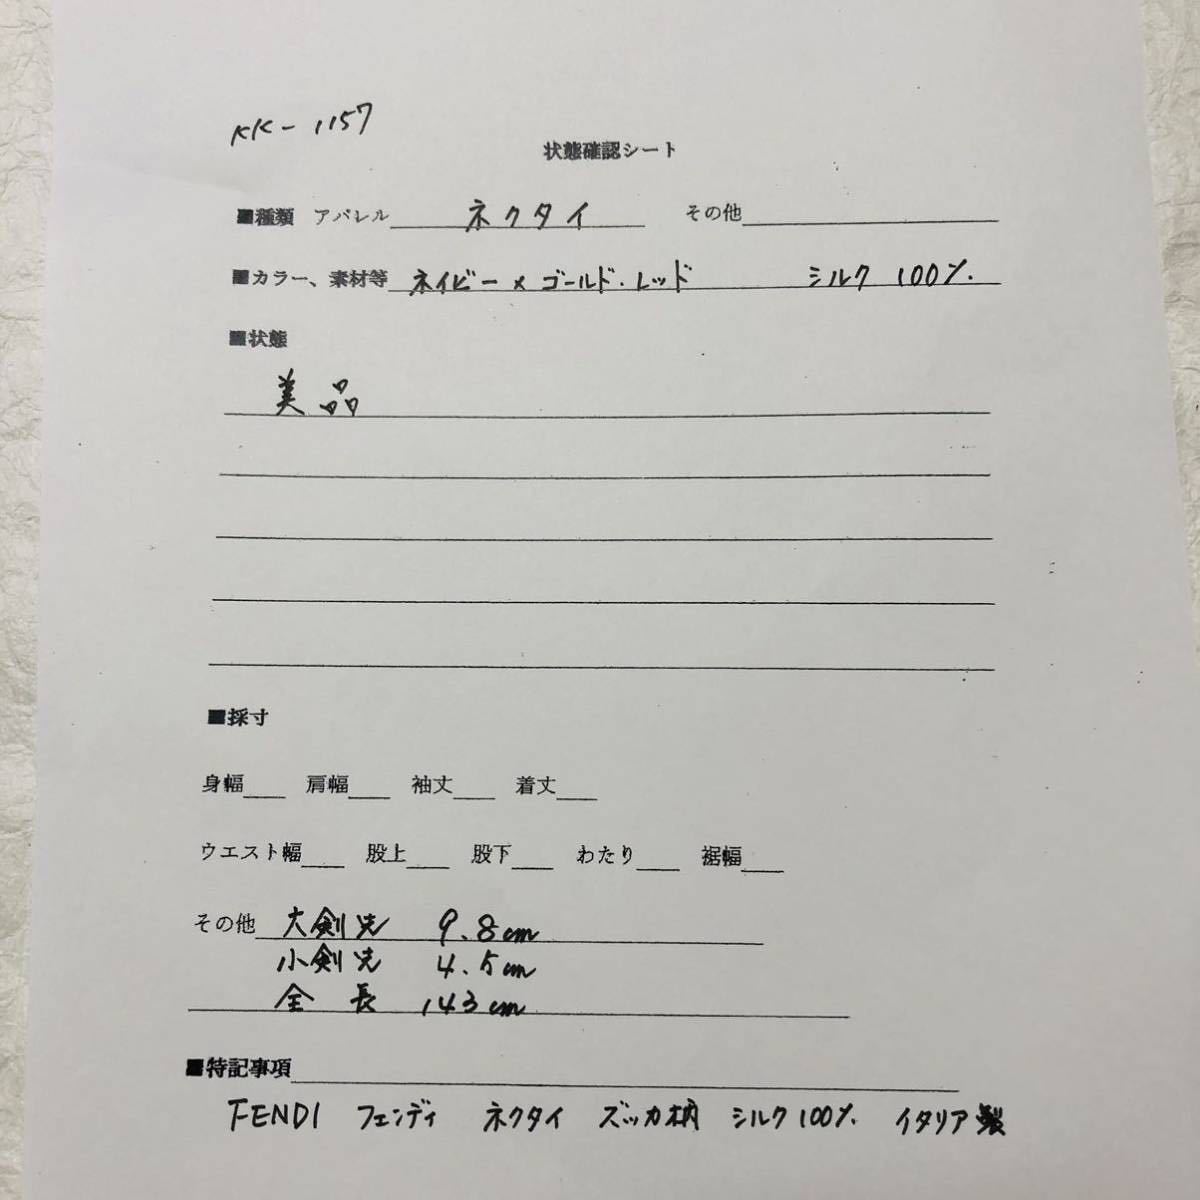 KK-1157
状態確認シート
■種類 アパレル ネクタイ その他
■カラー、素材等 ネイビー×ゴールド・レッド シルク 100%
■状態
美品
■採寸
身幅 肩幅 袖丈 着丈
ウエスト幅 股上 股下 わたり 裾幅
その他 大剣先 9.8cm
小剣先 4.5cm
全長 143cm
■特記事項
FENDI フェンディ ネクタイ ズッカ柄 シルク100% イタリア製